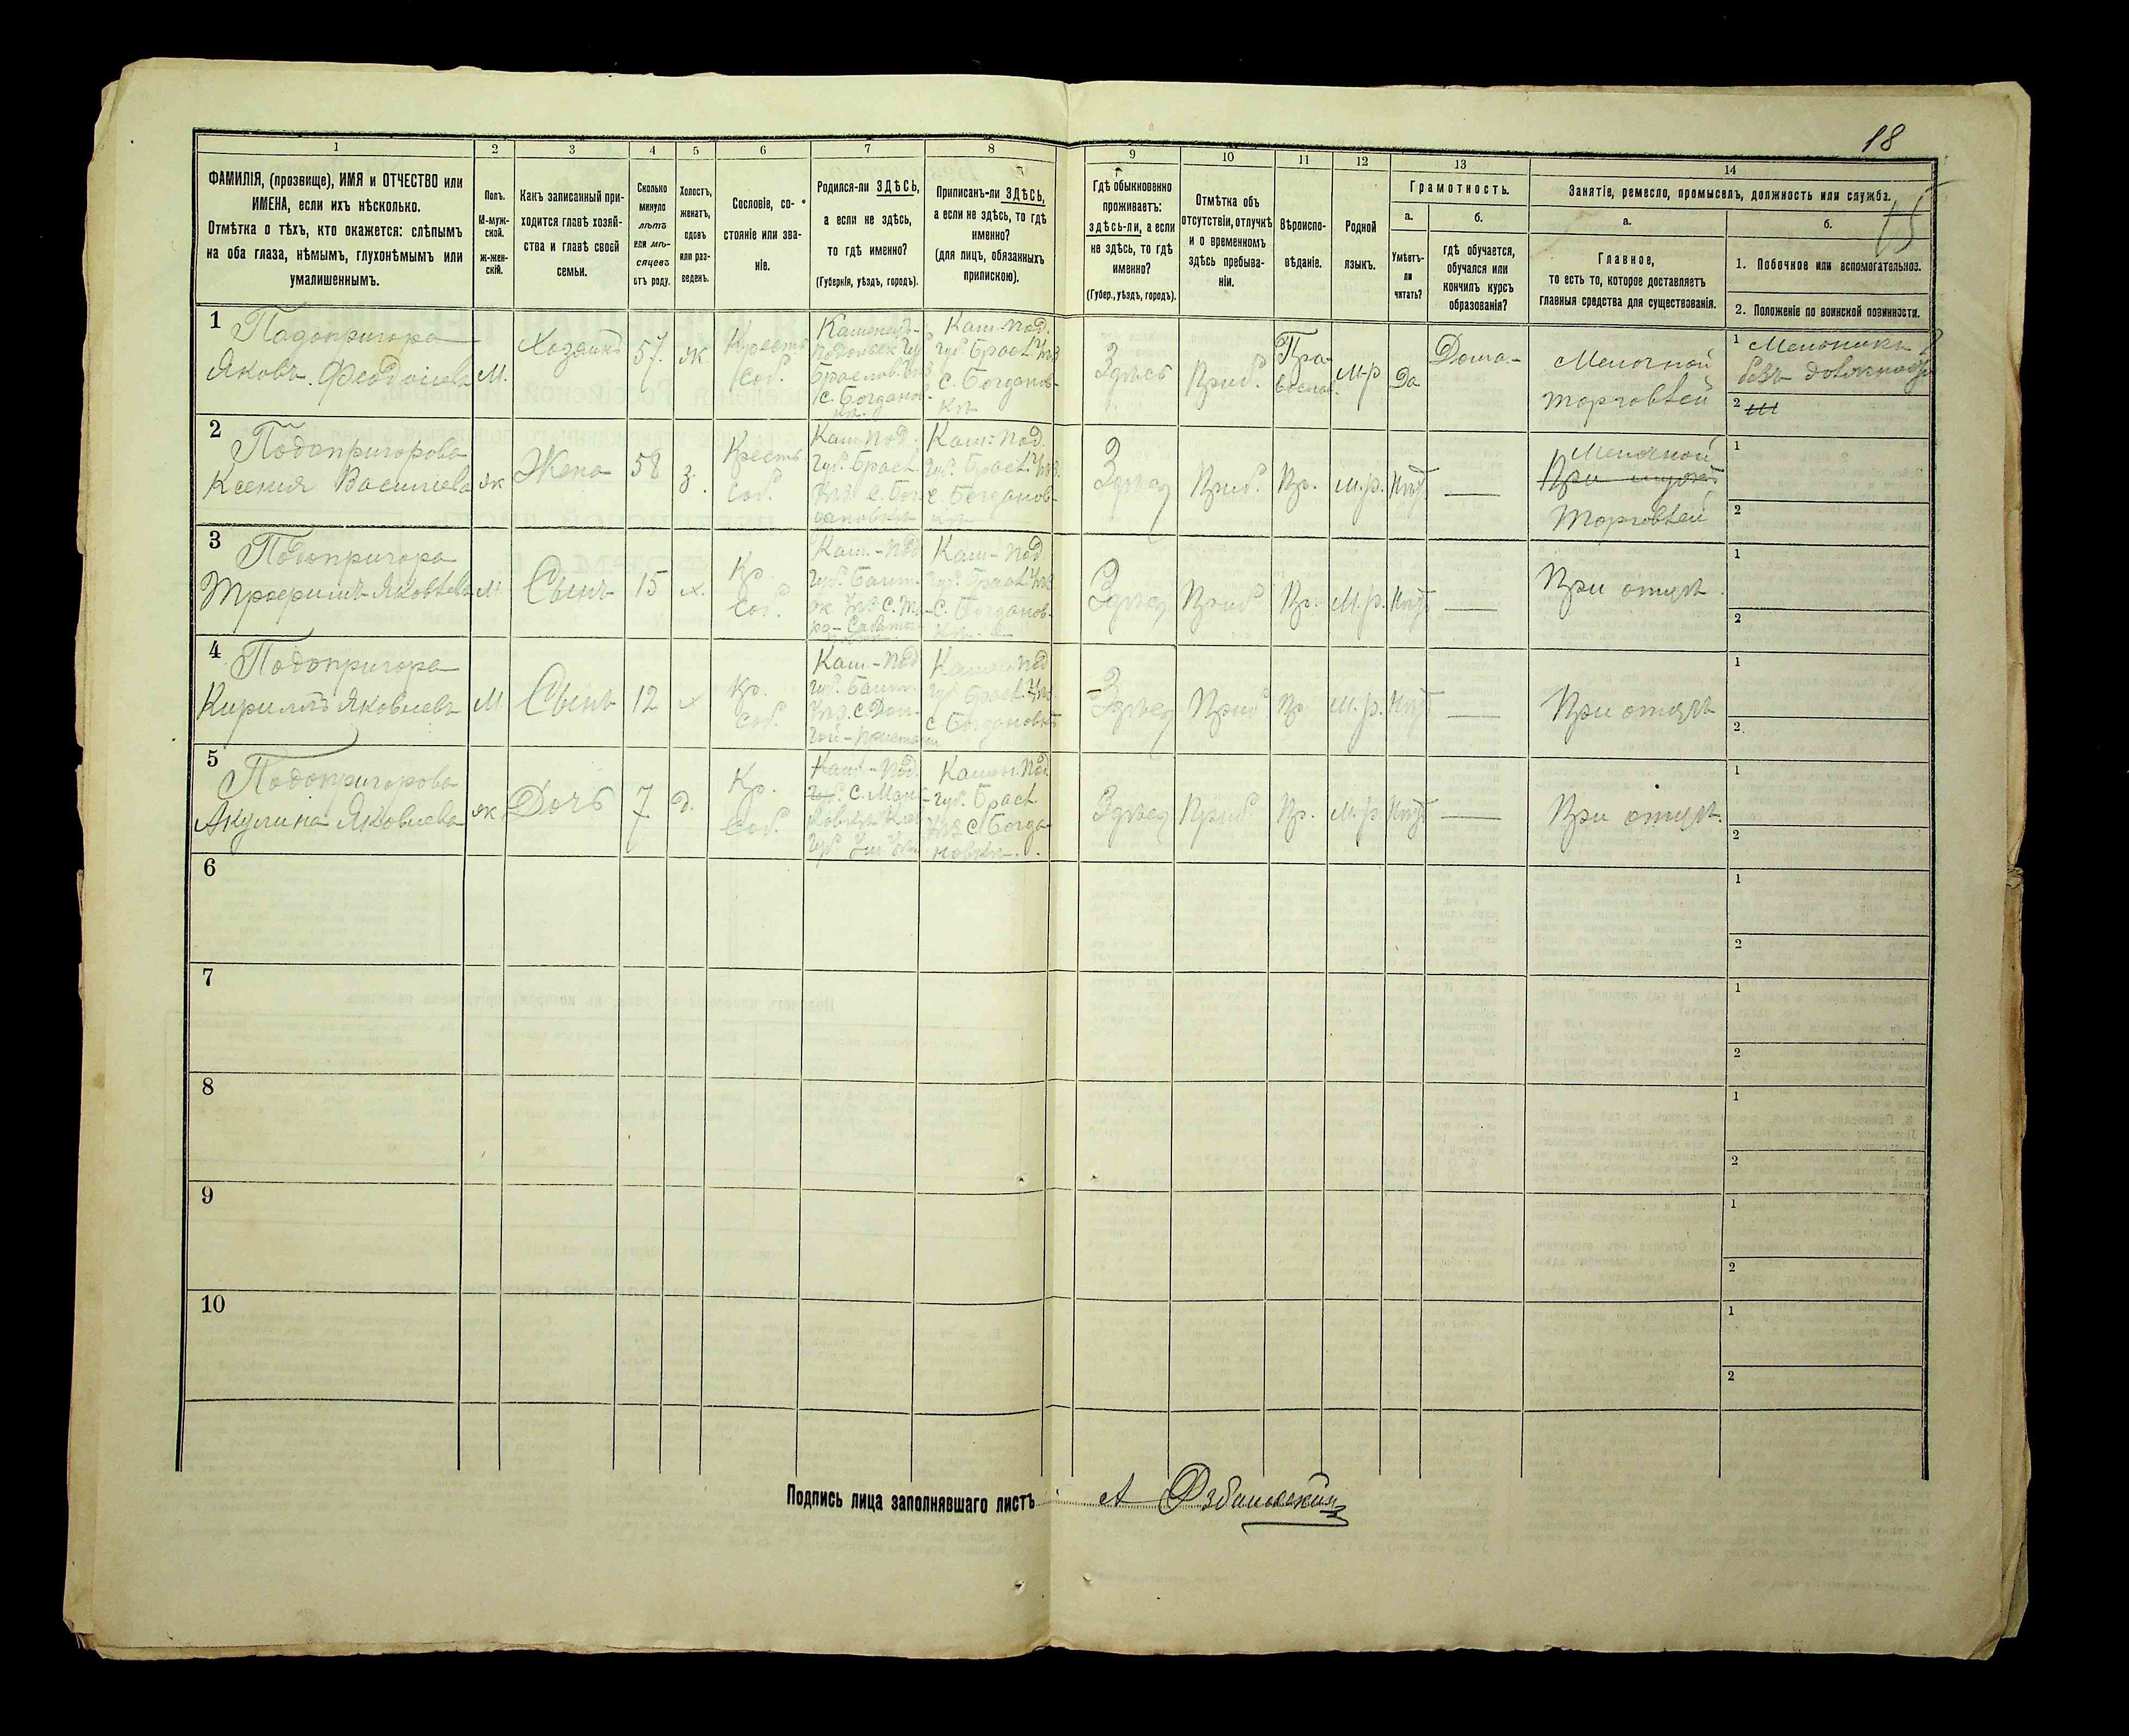 18
15
1
2
3
4
5
6
7
8
ФАМИЛІЯ, (прозвище), ИМЯ и ОТЧЕСТВО или
ИМЕНА, если ихъ нѣсколько.
Отмѣтка о тѣхъ, кто окажется: слѣпымъ
на оба глаза, нѣмымъ, глухонѣмымъ или
умалишеннымъ.
Полъ.
М-муж-
ской.
ж-жен-
скій.
Какъ записанный при-
ходится главѣ хозяй-
ства и главѣ своей
семьи.
Сколько
минуло
лѣтъ
или мѣ-
сяцевъ
отъ роду.
Холостъ,
женатъ,
вдовъ
или раз-
веденъ.
Сословіе, со-
стояніе или зва-
ніе.
Родился-ли ЗДѢСЬ,
а если не здѣсь,
то гдѣ именно?
(Губернія, уѣздъ, городъ).
Приписанъ-ли ЗДѢСЬ,
а если не здѣсь, то гдѣ
именно?
(для лицъ, обязанныхъ
припискою).
9
10
11
12
13
14
Гдѣ обыкновенно
проживаетъ:
здѣсь-ли, а если
не здѣсь, то гдѣ
именно?
(Губер., уѣздъ, городъ).
Отмѣтка объ
отсутствіи, отлучкѣ
и о временномъ
здѣсь пребыва-
ніи.
Вѣроиспо-
вѣданіе.
Родной
языкъ.
Грамотность.
а.
Умѣетъ-
ли
читать?
б.
гдѣ обучается,
обучался или
кончилъ курсъ
образованія?
Занятіе, ремесло, промыселъ, должность или служба.
а.
Главное,
то есть то, которое доставляетъ
главныя средства для существованія.
б.
1. Побочное или вспомогательное.
2. Положеніе по воинской повинности.
1
Подопригора
Яковъ
М.
Хозяинъ
57.
ж
Крестъ.
соб.
Каменец-
с. Богданов-
ка.
Кам-Под.
Губ. Брасл. Уѣз.
с. Богданов-
ка
Здѣсь
Пра-
вослав.
М-р
Да
Дома.-
Мелочной
торговлей
1
2
2
Подопригорова
Ксения Васильева
ж
Жена
58
з.
Крестъ.
соб.
Кам-Под.
Губ. Брасл.
Уѣз. с. Бог-
дановка
Кам-Под.
Губ. Брасл. Уѣз.
с. Богданов-
ка
Здѣсь
Пр.
м.р.
Нѣт
Мелочной
Торговлей
1
2
3
Подопригора
Трофимъ Яковлевъ
М
Сынъ
15
х.
Кр.
соб.
Кам.-Под
Губ. Балт.
Кам-Под
Губ. Брасл. Уѣз
с. Богданов-
ка
Здѣсь
Пр.
М.р.
Нѣт
При отцѣ
1
2
4
Подопригора
Кирилъ Яковлевъ
М
Сынъ
12
х
Кр.
соб.
Кам.-Под
Губ. Балт.
Кам-Под
Губ. Брасл. Уѣз.
с. Богдановка
Здѣсь
Пр.
М.р.
Нѣт
При отцѣ
1
2.
5
Подопригорова
Акулина Яковлева
ж
Дочь
7
д.
Кр.
Соб.
Кам.-Под.
Камен.Под.
Губ. Брасл.
Уѣз с Богда-
новка.
Здѣсь
Пр.
М.р.
Нѣт
При отцѣ.
1
2
6
1
2
7
1
2
8
1
2
9
1
2
10
1
2
Подпись лица заполнявшаго листъ